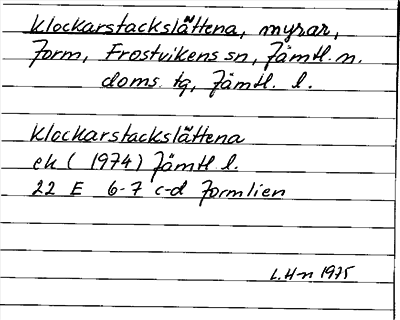 Klockarstackslåttena, myrar,
Form, Frostvikens sn, Jämtl. n.
doms. tg, Jämtl. l.
Klockarstackslåttena
ek (1974) Jämtl l.
22 E 6-7 c-d Formlien
L.H-n 1975